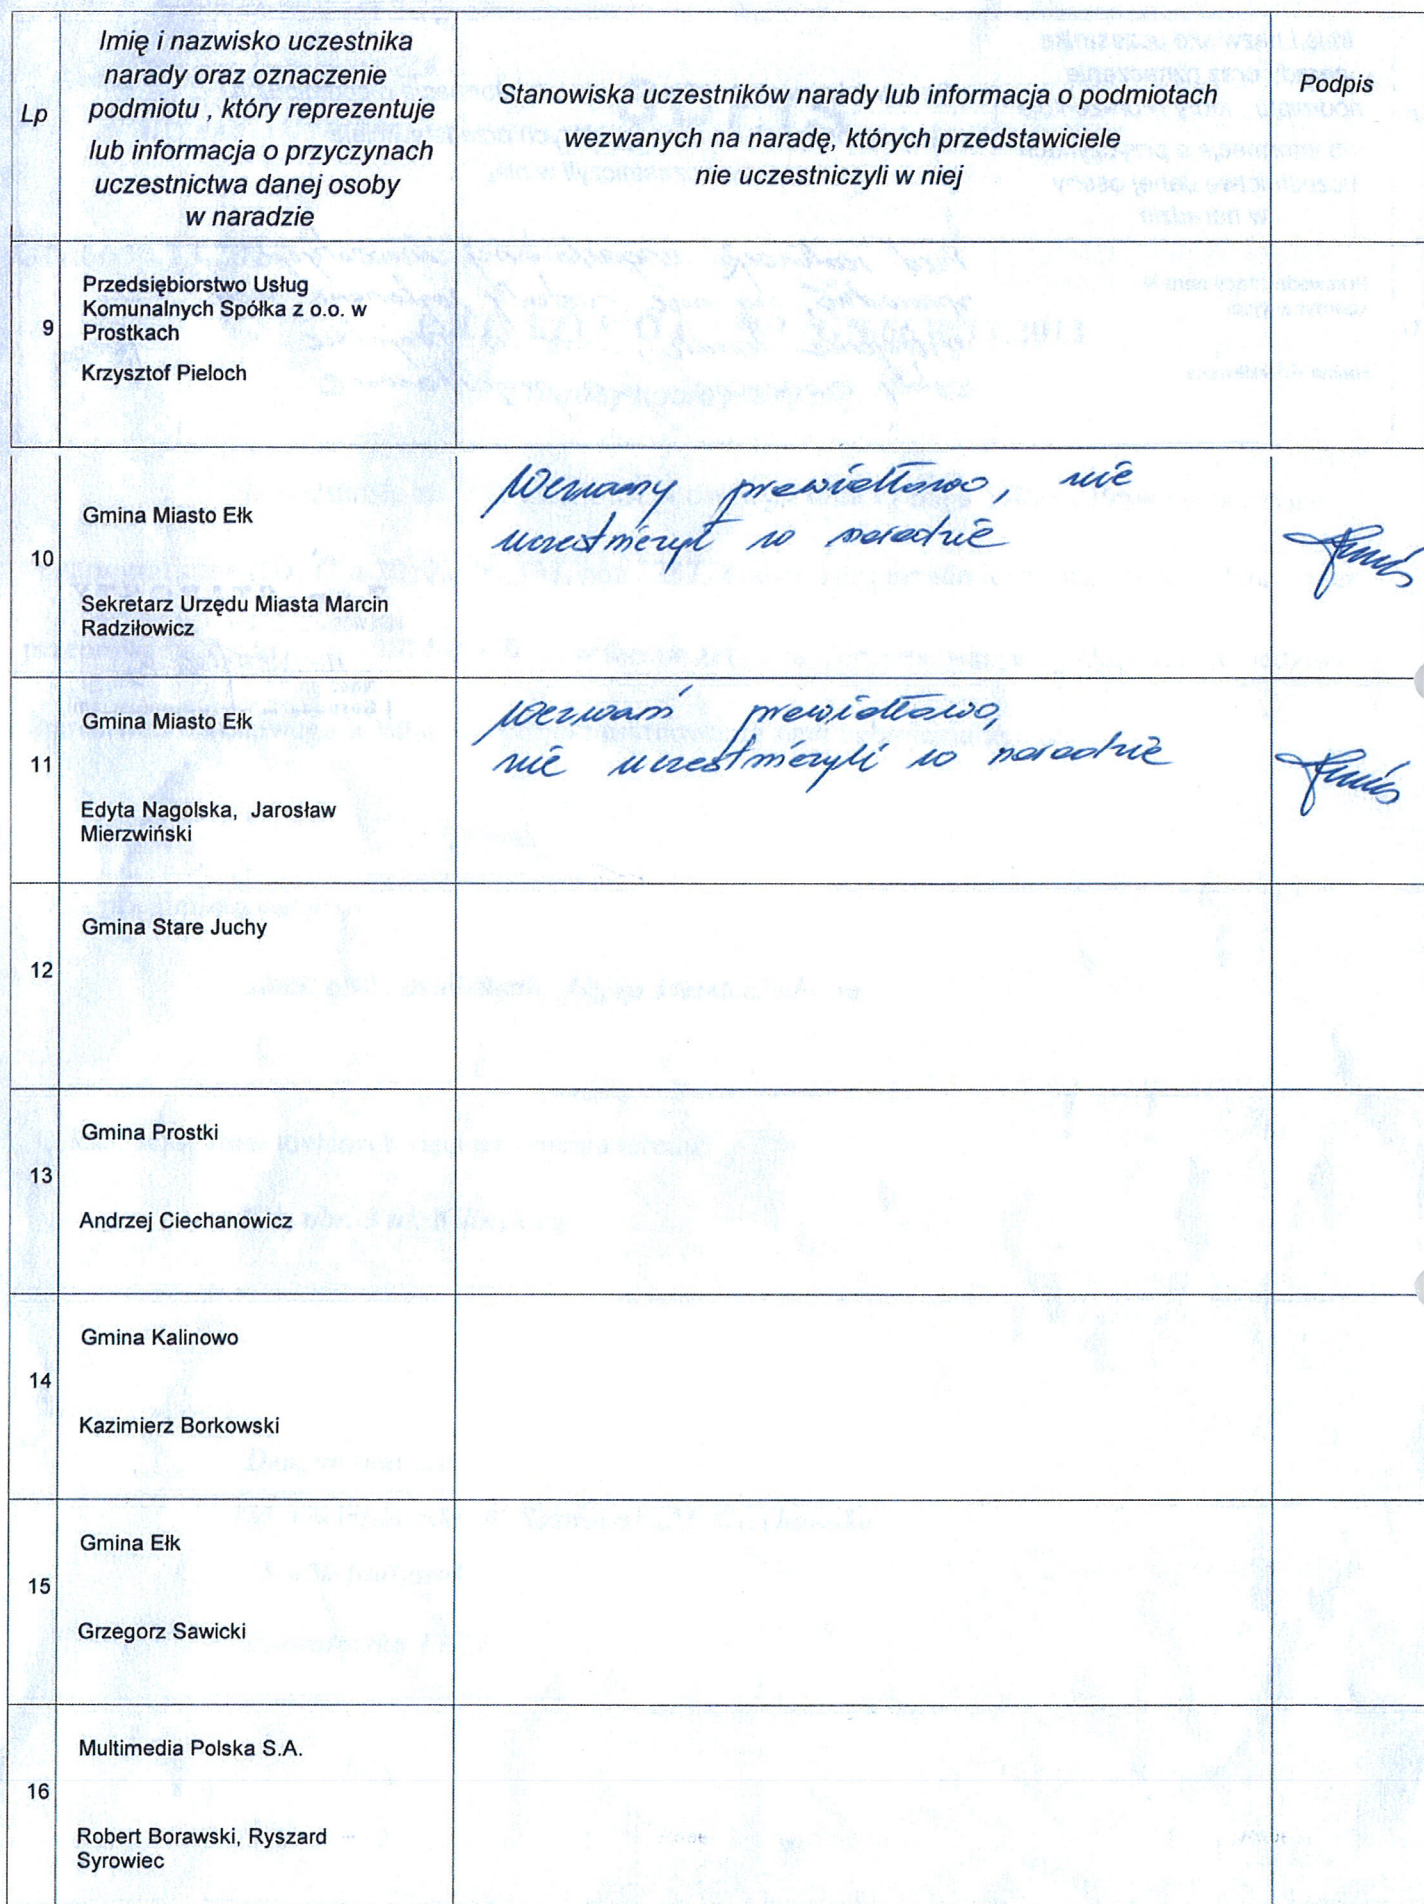 Lp
Imię i nazwisko uczestnika
narady oraz oznaczenie
podmiotu , który reprezentuje
lub informacja o przyczynach
uczestnictwa danej osoby
w naradzie
Stanowiska uczestników narady lub informacja o podmiotach
wezwanych na naradę, których przedstawiciele
nie uczestniczyli w niej
Podpis
9
Przedsiębiorstwo Usług
Komunalnych Spółka z o.o. w
Prostkach
Krzysztof Pieloch
10
Gmina Miasto Ełk
Sekretarz Urzędu Miasta Marcin
Radziłowicz
wezwany prawidłowo, nie
uczestniczył w naradzie
11
Gmina Miasto Ełk
Edyta Nagolska, Jarosław
Mierzwiński
wezwani prawidłowo,
nie uczestniczyli w naradzie
12
Gmina Stare Juchy
13
Gmina Prostki
Andrzej Ciechanowicz
14
Gmina Kalinowo
Kazimierz Borkowski
15
Gmina Ełk
Grzegorz Sawicki
16
Multimedia Polska S.A.
Robert Borawski, Ryszard
Syrowiec